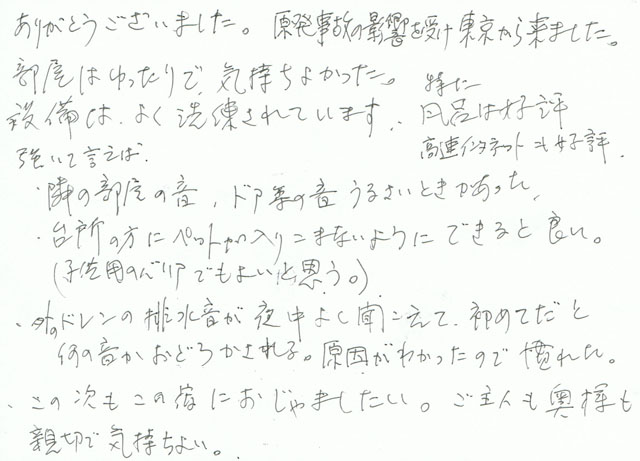 ありがとうございました。原発事故の影響を受け東京から来ました。
部屋はゆったりで、気持ちよかった。
設備は、よく洗練されています。特に風呂は好評
高速インタネットも好評.
強いて言えば.
・隣の部屋の音、ドア等の音うるさいときがあった、
・台所の方にペットが入りこまないようにできると良い。
(子供用のバリアでもよいと思う。)
・外のドレンの排水音が夜中よく聞こえて、初めてだと
何の音かおどろかされる。原因がわかったので慣れた。
・この次もこの宿におじゃましたい。ご主人も奥様も
親切で気持ちよい。